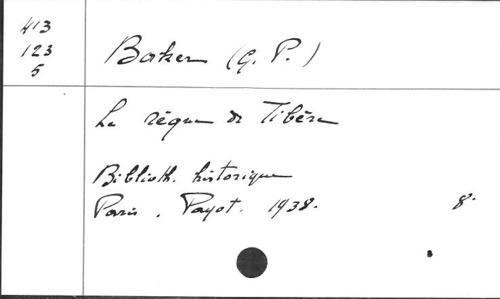 413
123
5
Baker (G. P.)
Le règne de Tibère
Biblioth. historique
Paris. Payot. 1938. 8°